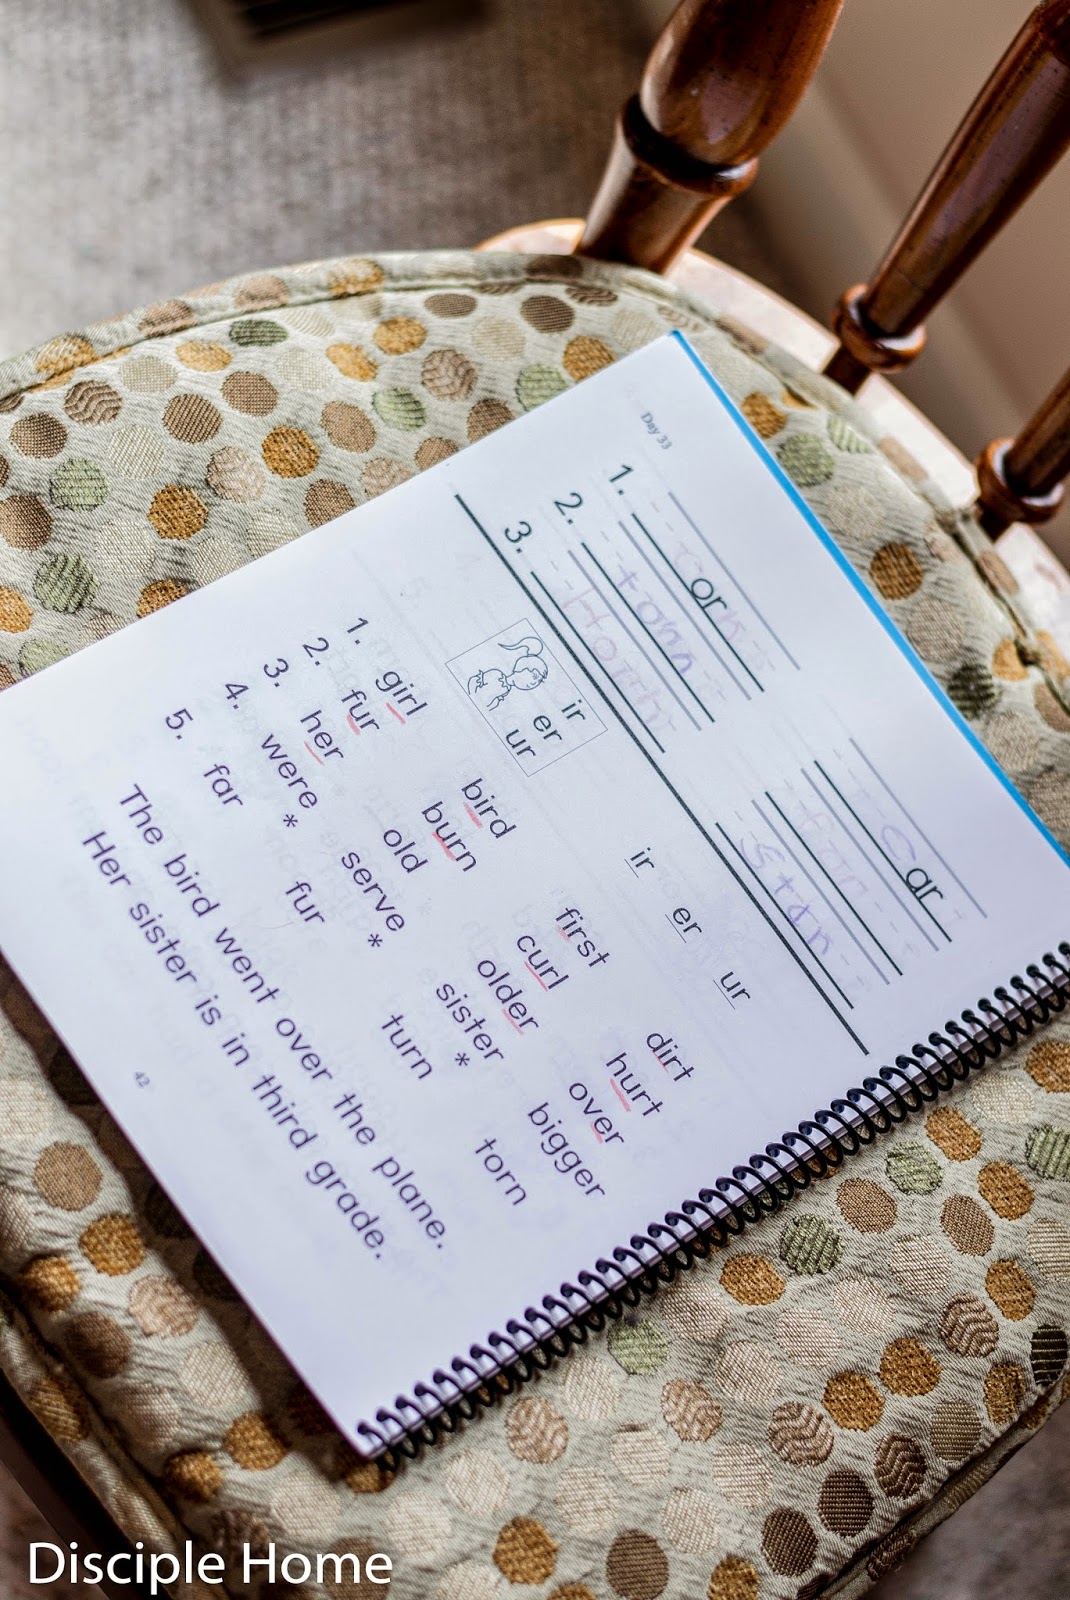 Day 33
1. cork car
2. torn
3. star
ir
er
ur
ir er ur
1. girl bird first dirt
2. fur burn curl hurt
3. her old older over
4. were* serve* sister* bigger
5. far fur turn torn
The bird went over the plane.
Her sister is in third grade.
42
Disciple Home